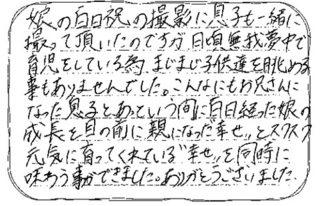 娘の百日祝の撮影に息子も一緒に
撮って頂いたのですが、日頃無我夢中で
育児をしている為、まじまじ子供達を眺める
事もありませんでした。こんなにもお兄さんに
なった息子とあっという間に百日経った娘の
成長を目の前に親になった“幸せ”とスクスク
元気に育ってくれている“幸せ”を同時に
味わう事ができました。ありがとうございました。